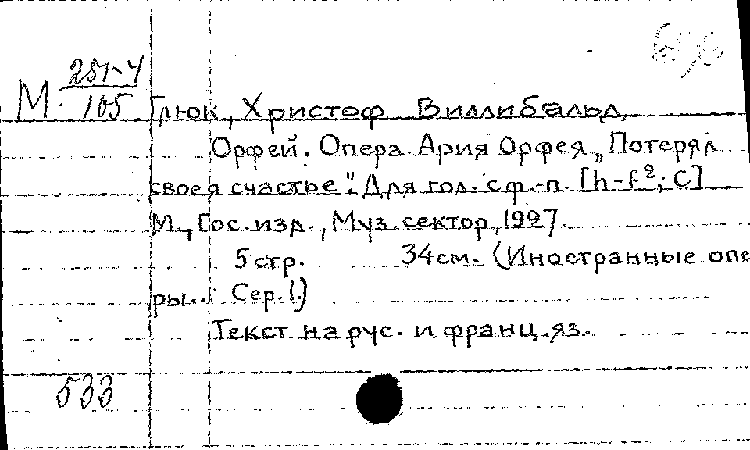 М 251-4/105
Глюк, Христоф Виллибальд.
Орфей. Опера. Ария Орфея „Потерял
свое я счастье". Для гол. с ф.-п. [h-f²; C]
М., Гос. изд., Муз. сектор, 1927.
5 стр. 34 см. (Иностранные опе
ры.. Сер. I.)
Текст на рус. и франц. яз.
533